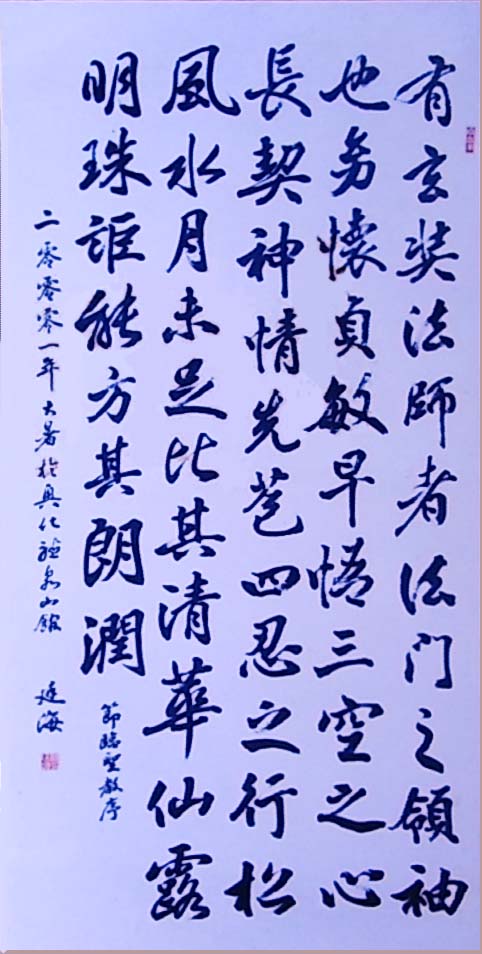 有玄奘法師者法门之領袖
也幼懷貞敏早悟三空之心
長契神情先苞四忍之行松
風水月未足比其清華仙露
明珠詎能方其朗潤
節臨聖教序
二零零零一年大暑於興化泉山館 延海